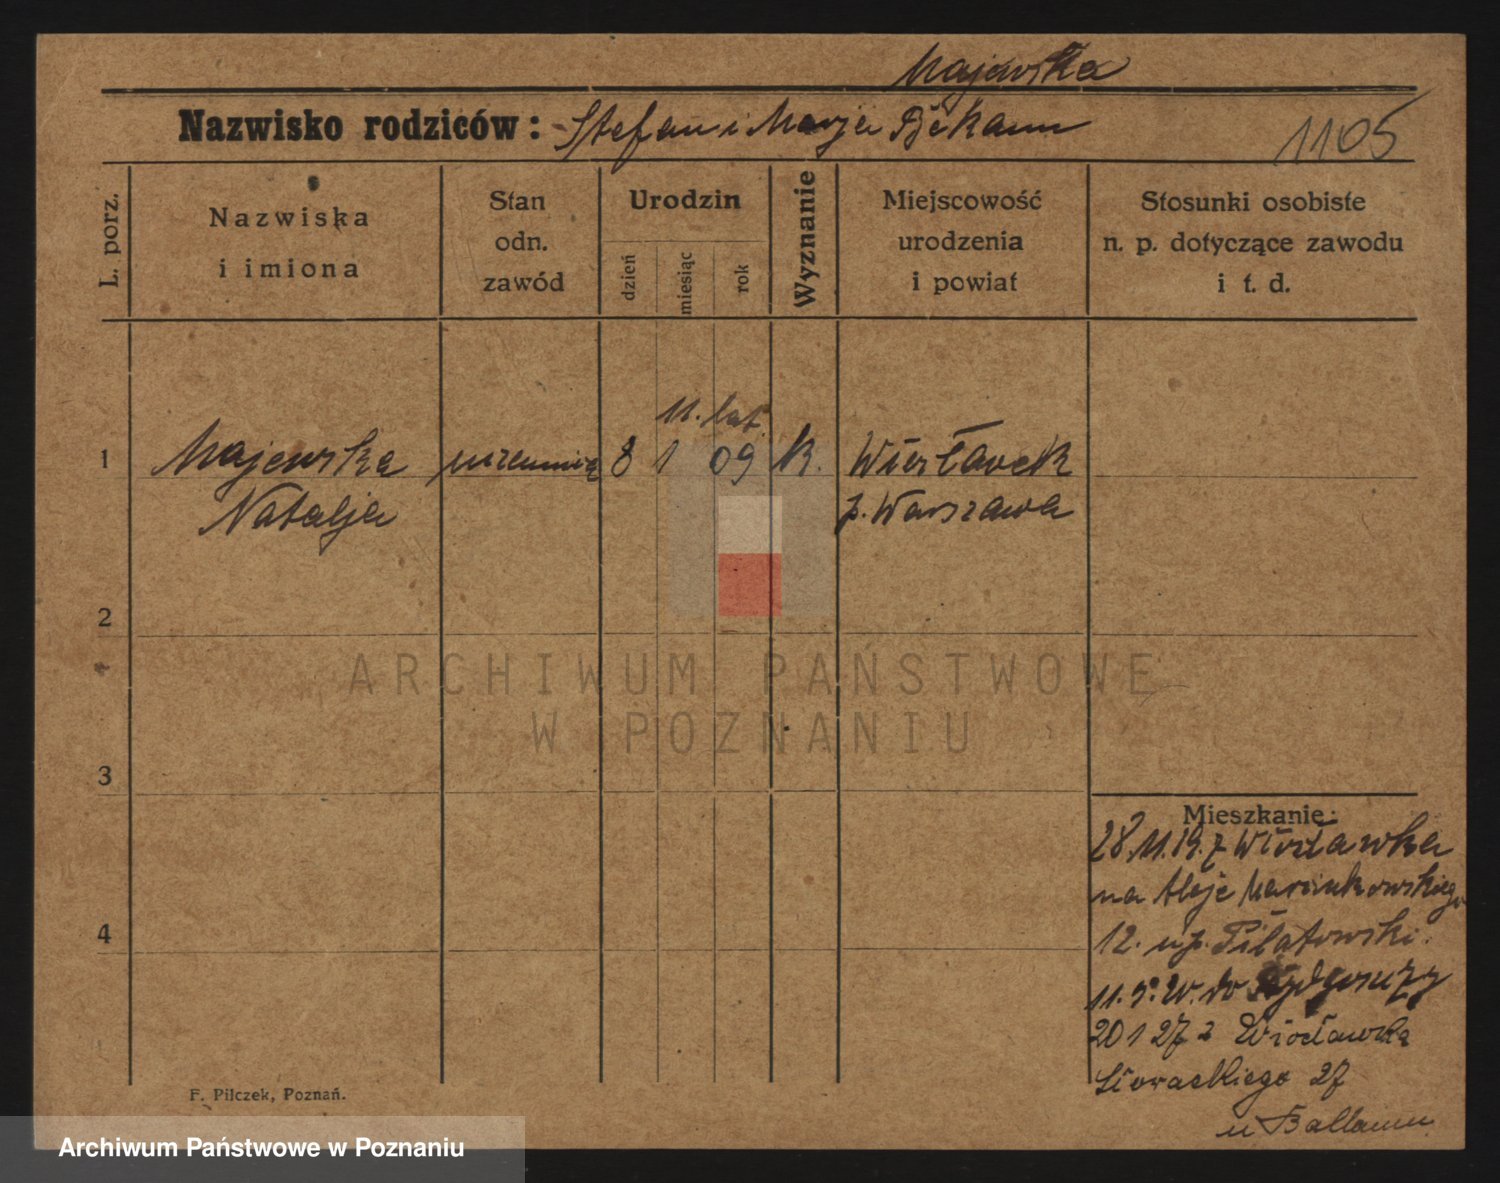 Majewska
Nazwisko rodziców: Stefan i Marja
1105
L. porz.
Nazwiska
i imiona
Stan
odn.
zawód
Urodzin
dzień
miesiąc
rok
Wyznanie
Miejscowość
urodzenia
i powiat
Stosunki osobiste
n. p. dotyczące zawodu
i t. d.
11. lat.
1 Majewska 8 1 09 k.
Natalja p. Warszawa
2
3
Mieszkanie:
28.11.19. z Włocławka
na Aleje Marcinkowskiego
4
12. u p.
do Bydgoszczy
20 1 27 z Włocławka
Słowackiego 27
u
F. Pilczek, Poznań.
ARCHIWUM PAŃSTWOWE
W POZNANIU
Archiwum Państwowe w Poznaniu